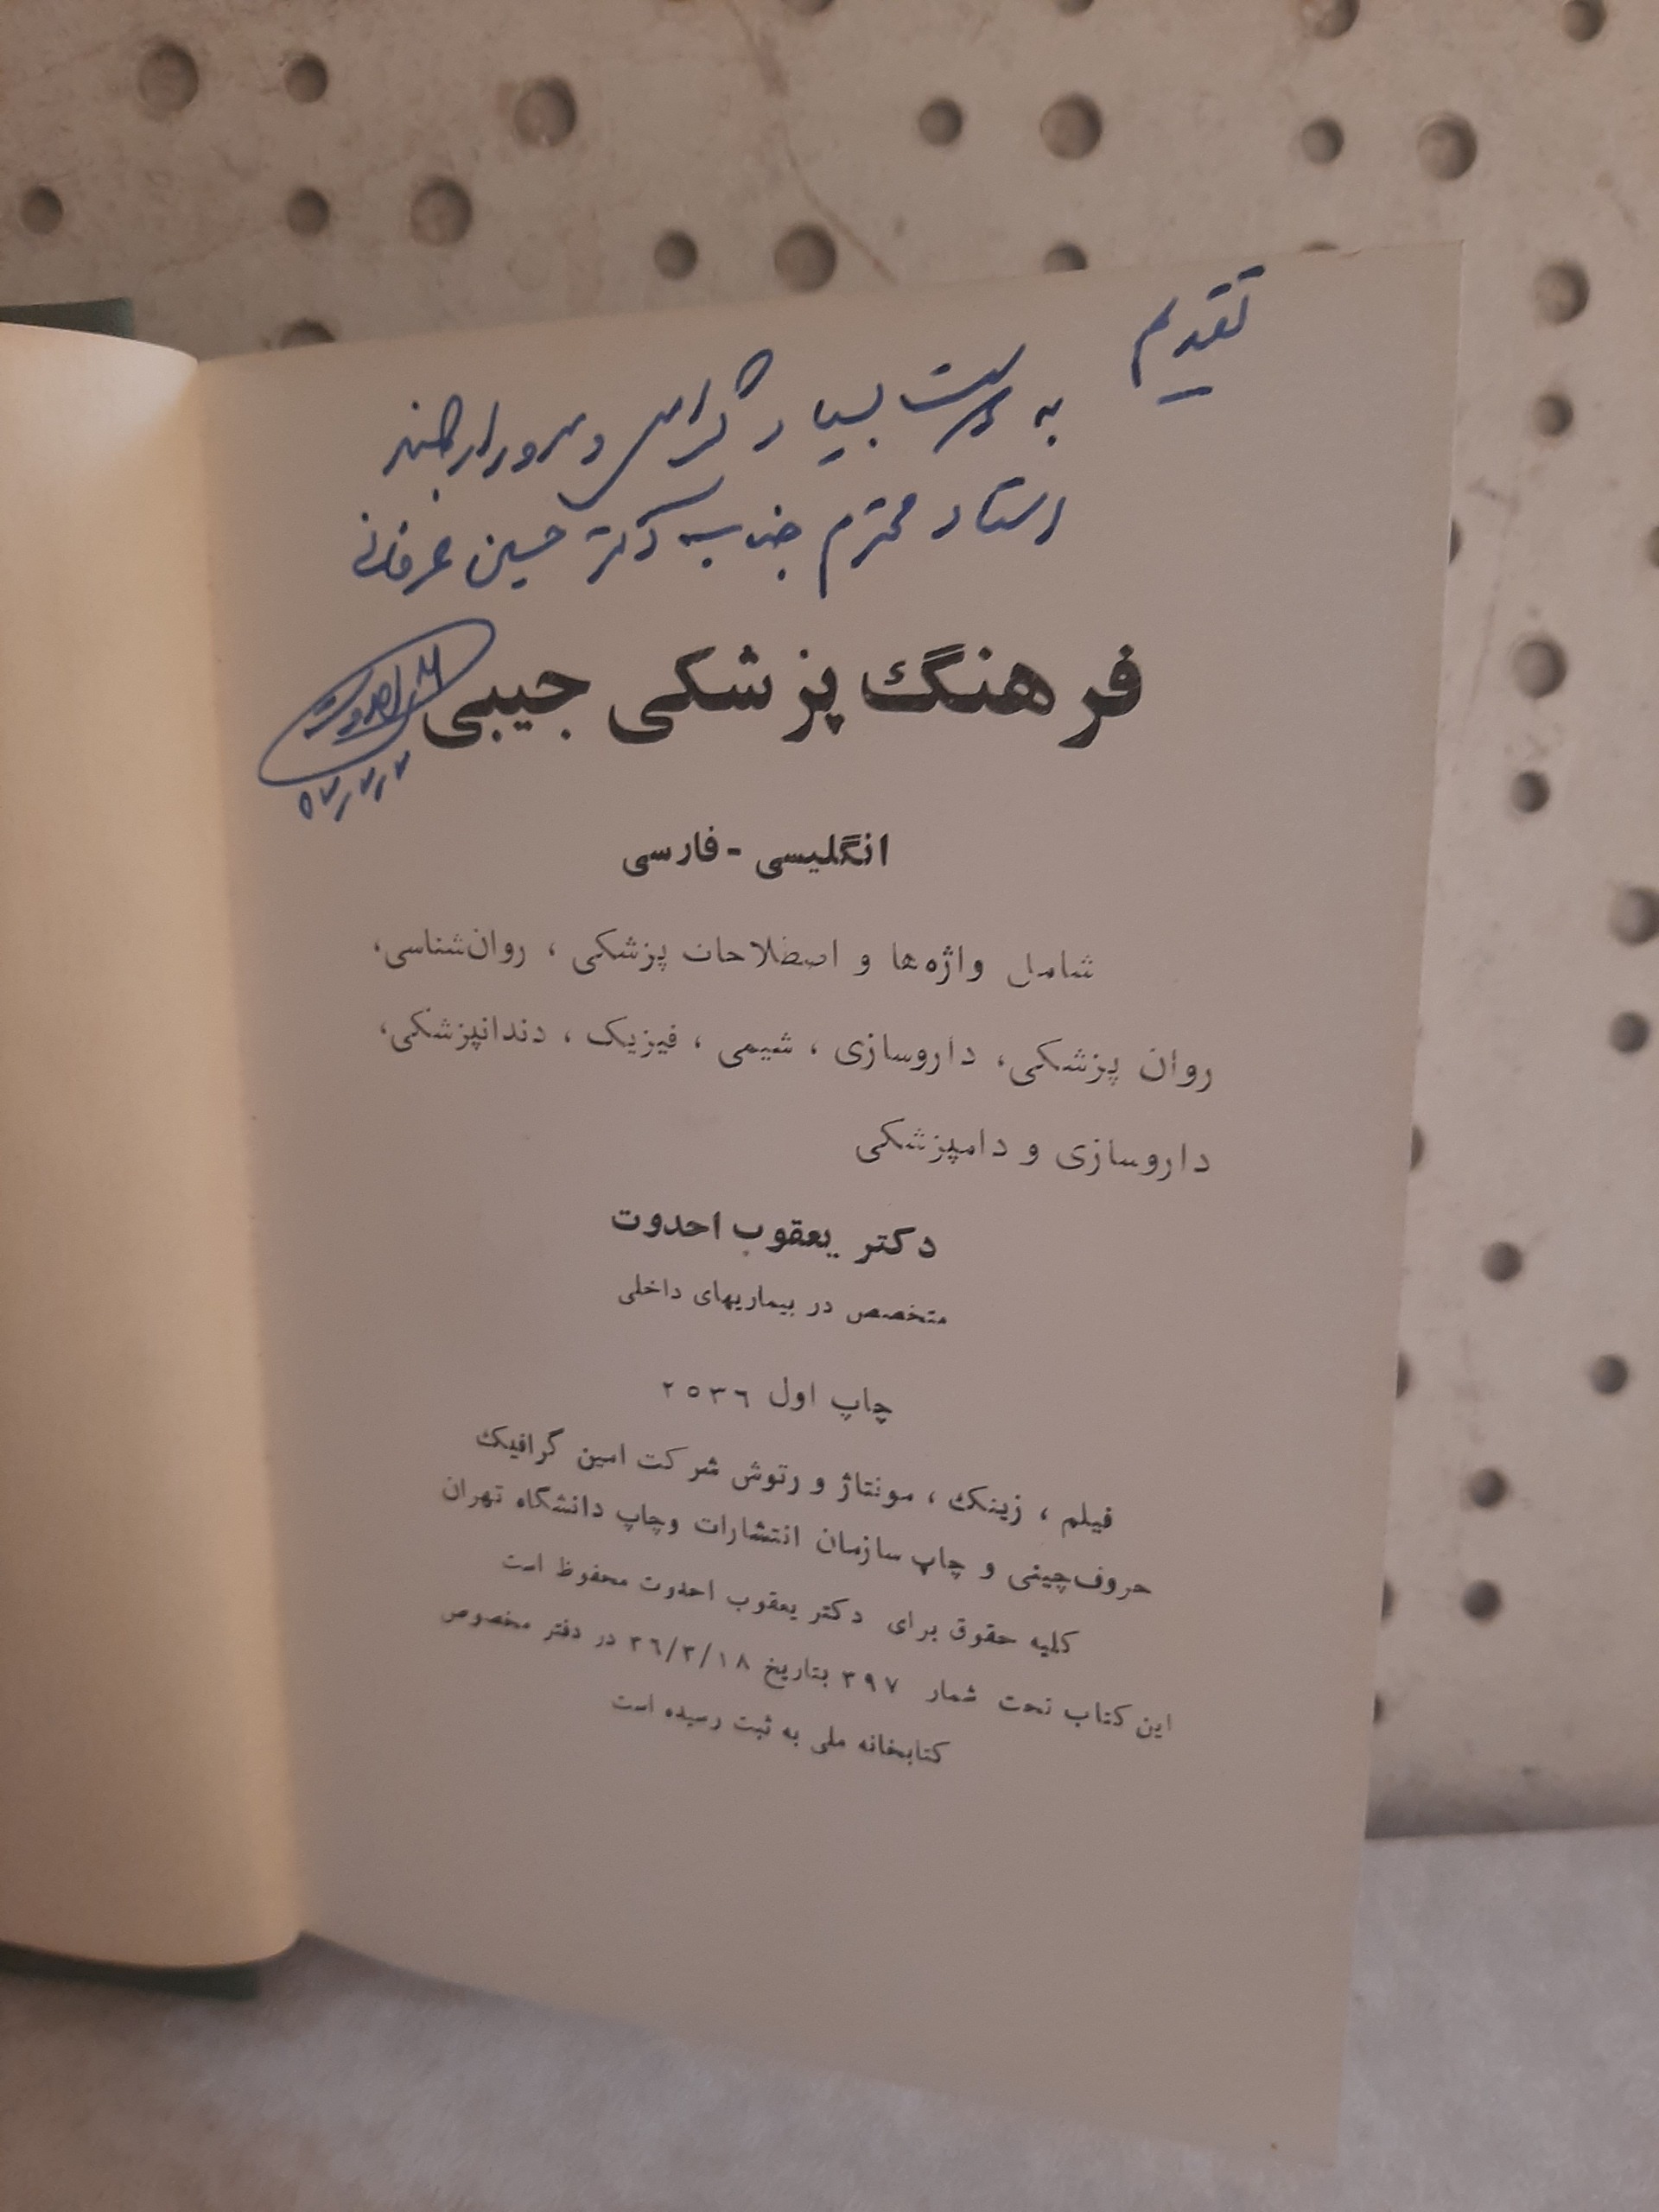 تقدیم
به دوست بسیار گرامی و سرور ارجمند
استاد محترم جناب دکتر حسین عرفانی
فرهنگ پزشکی جیبی
احدوت
۵۷٫۷٫۷
انگلیسی - فارسی
شامل واژه‌ها و اصطلاحات پزشکی ، روان‌شناسی،
روان پزشکی، داروسازی ، شیمی ، فیزیک ، دندانپزشکی،
داروسازی و دامپزشکی
دکتر یعقوب احدوت
متخصص در بیماریهای داخلی
چاپ اول ۲۵۳۶
فیلم ، زینک ، مونتاژ و رتوش شرکت امین گرافیک
حروف‌چینی و چاپ سازمان انتشارات وچاپ دانشگاه تهران
کلیه حقوق برای دکتر یعقوب احدوت محفوظ است
این کتاب تحت شمار ۳۹۷ بتاریخ ۳۶/۳/۱۸ در دفتر مخصوص
کتابخانه ملی به ثبت رسیده است